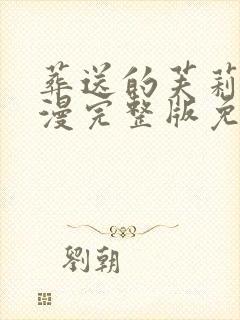 葬送的芙莉
漫完整版免
劉朝